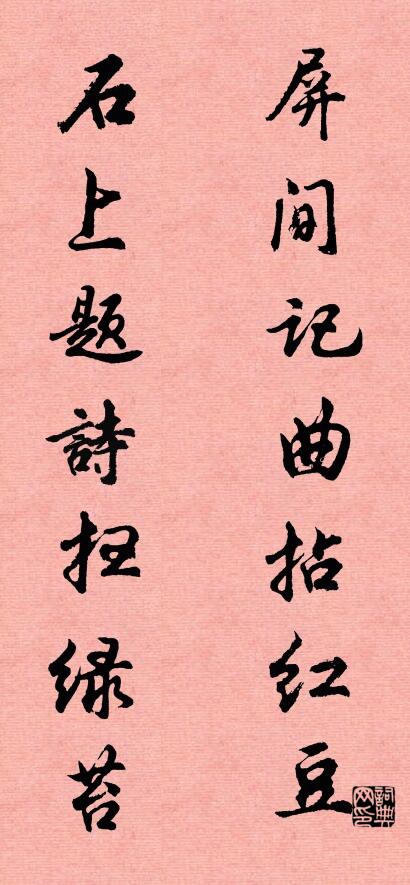 屏间记曲拈红豆
石上题詩扫绿苔
詞典网印